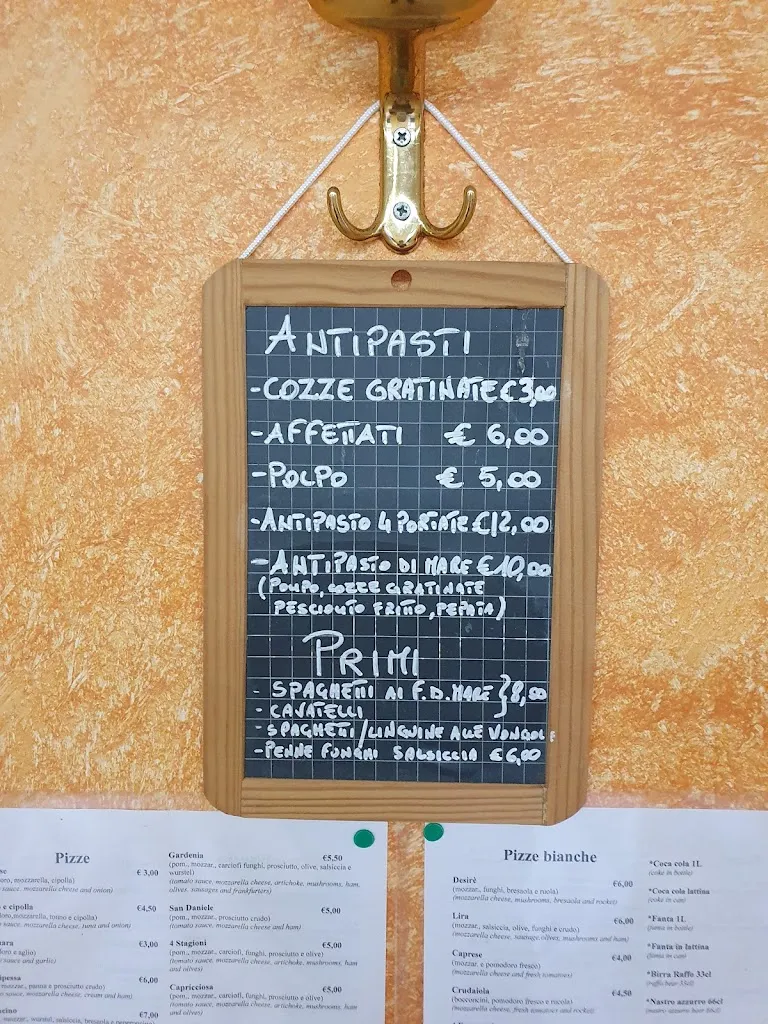 ANTIPASTI
-COZZE GRATINATE € 3,00
-AFFETTATI € 6,00
-POLPO € 5,00
-ANTIPASTO 4 PORTATE € 12,00
-ANTIPASTO DI MARE € 10,00
(POLPO, COZZE GRATINATE
PESCIOLITO FRITTO, PEPATA)
PRIMI
- SPAGHETTI AI F.D.MARE } 8,00
- CAVATELLI
- SPAGHETTI/LINGUINE ALLE VONGOLE
-PENNE FUNGHI SALSICCIA € 6,00
Pizze
€ 3,00
mozzarella, cipolla)
sauce, mozzarella cheese and onion)
e cipolla €4,50
mozzarella, tonno e cipolla)
sauce, mozzarella cheese, tuna and onion)
€3,00
e aglio)
sauce and garlic)
€6,00
panna e prosciutto crudo)
sauce, mozzarella cheese, cream and ham)
€7,00
Gardenia €5,50
(pom., mozzar., carciofi funghi, prosciutto, olive, salsiccia e
wurstel)
(tomato sauce, mozzarella cheese, artichoke, mushrooms, ham,
olives, sausages and frankfurters)
San Daniele €5,00
(pom., mozzar., prosciutto crudo)
(tomato sauce, mozzarella cheese and ham)
4 Stagioni €5,00
(pom., mozzar., carciofi, funghi, prosciutto e olive)
(tomato sauce, mozzarella cheese, artichoke, mushrooms, ham
and olives)
Capricciosa €5,00
(pom., mozzar., carciofi, funghi, prosciutto e olive)
(tomato sauce, mozzarella cheese, artichoke, mushrooms, ham
and olives)
Pizze bianche
Desirè €6,00
(mozzar., funghi, bresaola e rucola)
(mozzarella cheese, mushrooms, bresaola and rocket)
Lira €6,00
(mozzar., salsiccia, olive, funghi e crudo)
(mozzarella cheese, sausage, olives, mushrooms and ham)
Caprese €4,00
(mozzar. e pomodoro fresco)
(mozzarella cheese and fresh tomatoes)
Crudaiola €4,50
(bocconcini, pomodoro fresco e rucola)
(mozzarella cheese, fresh tomatoes and rocket)
*Coca cola 1L
(coke in bottle)
*Coca cola lattina
(coke in can)
*Fanta 1L
(fanta in bottle)
*Fanta in lattina
(fanta in can)
*Birra Raffo 33cl
(raffo beer 33cl)
*Nastro azzurro 66cl
(nastro azzurro beer 66cl)